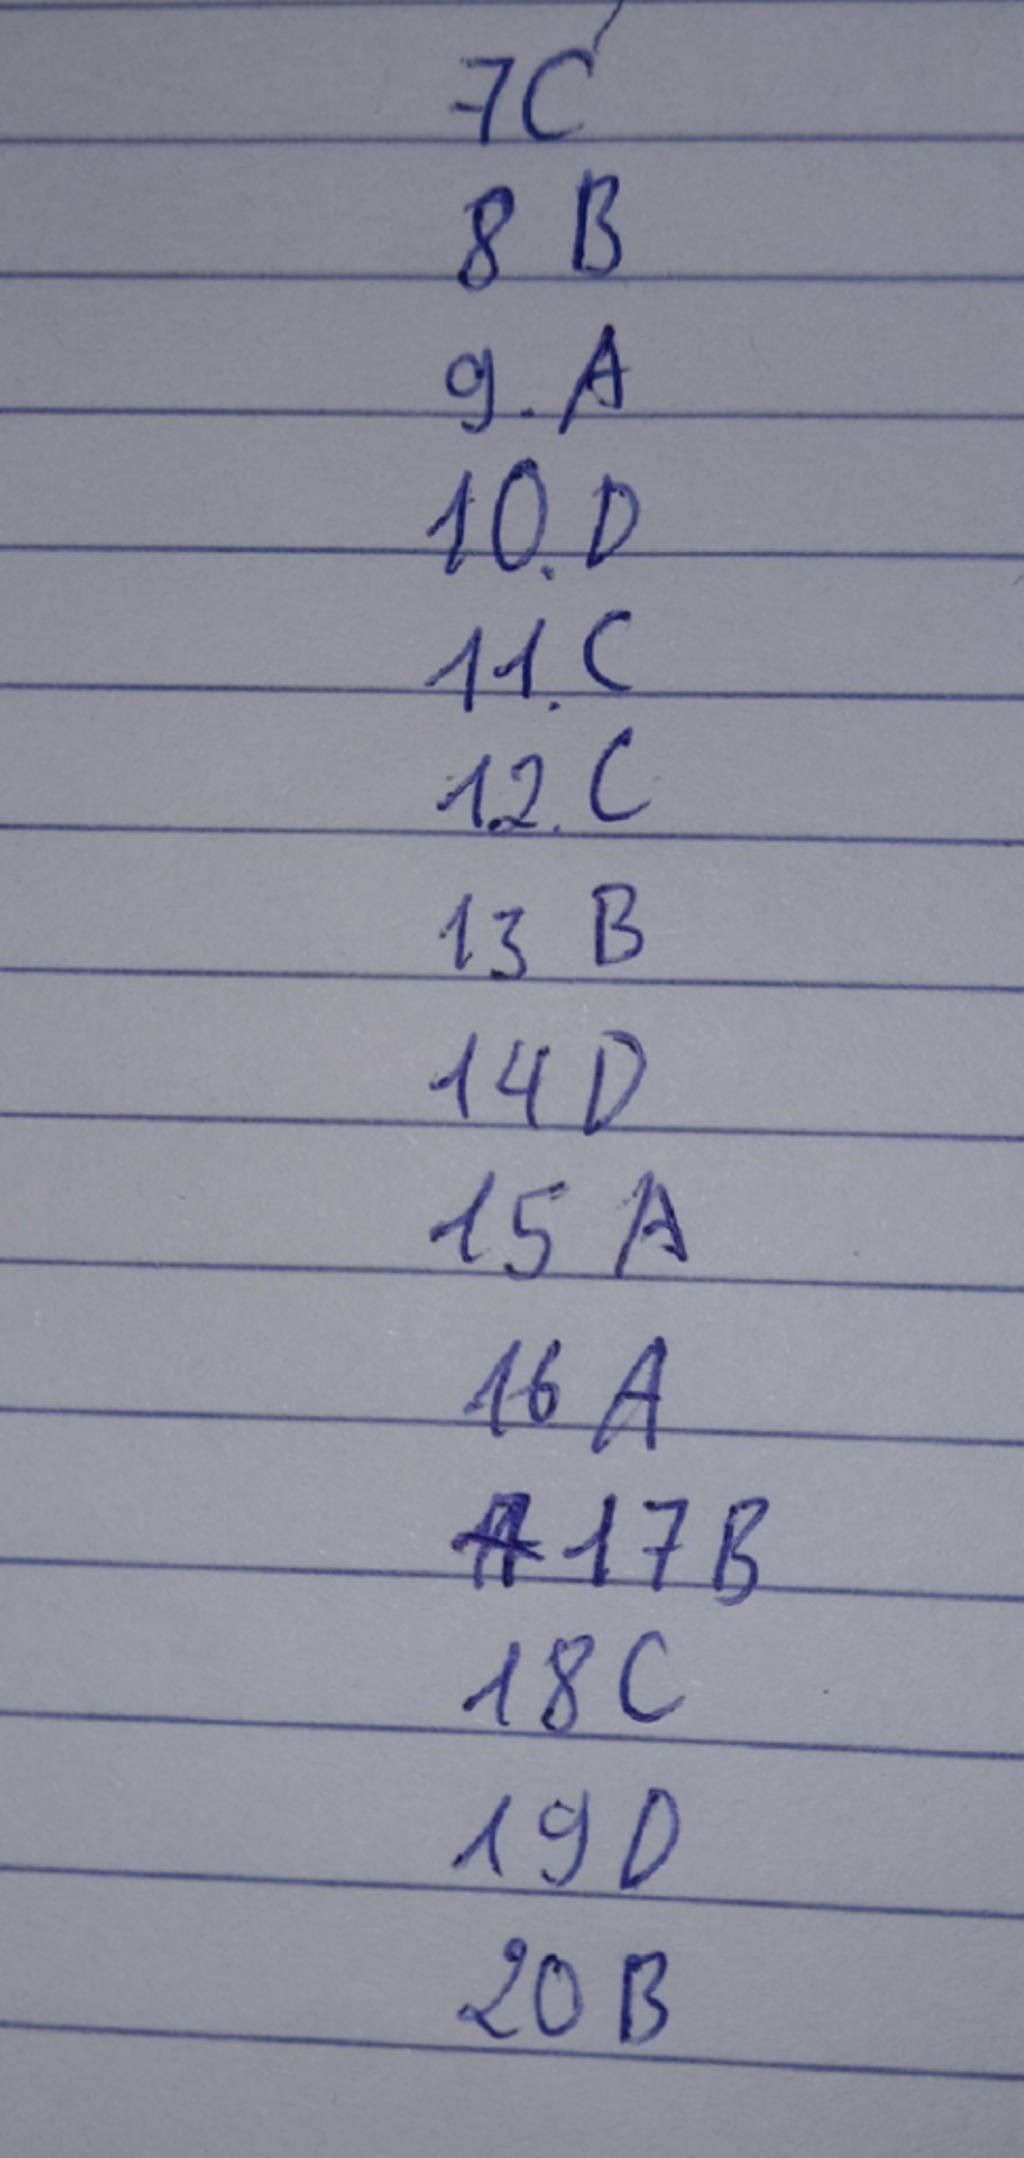 7C
8 B
9. A
10. D
11. C
12. C
13 B
14 D
15 A
16 A
17 B
18 C
19 D
20 B